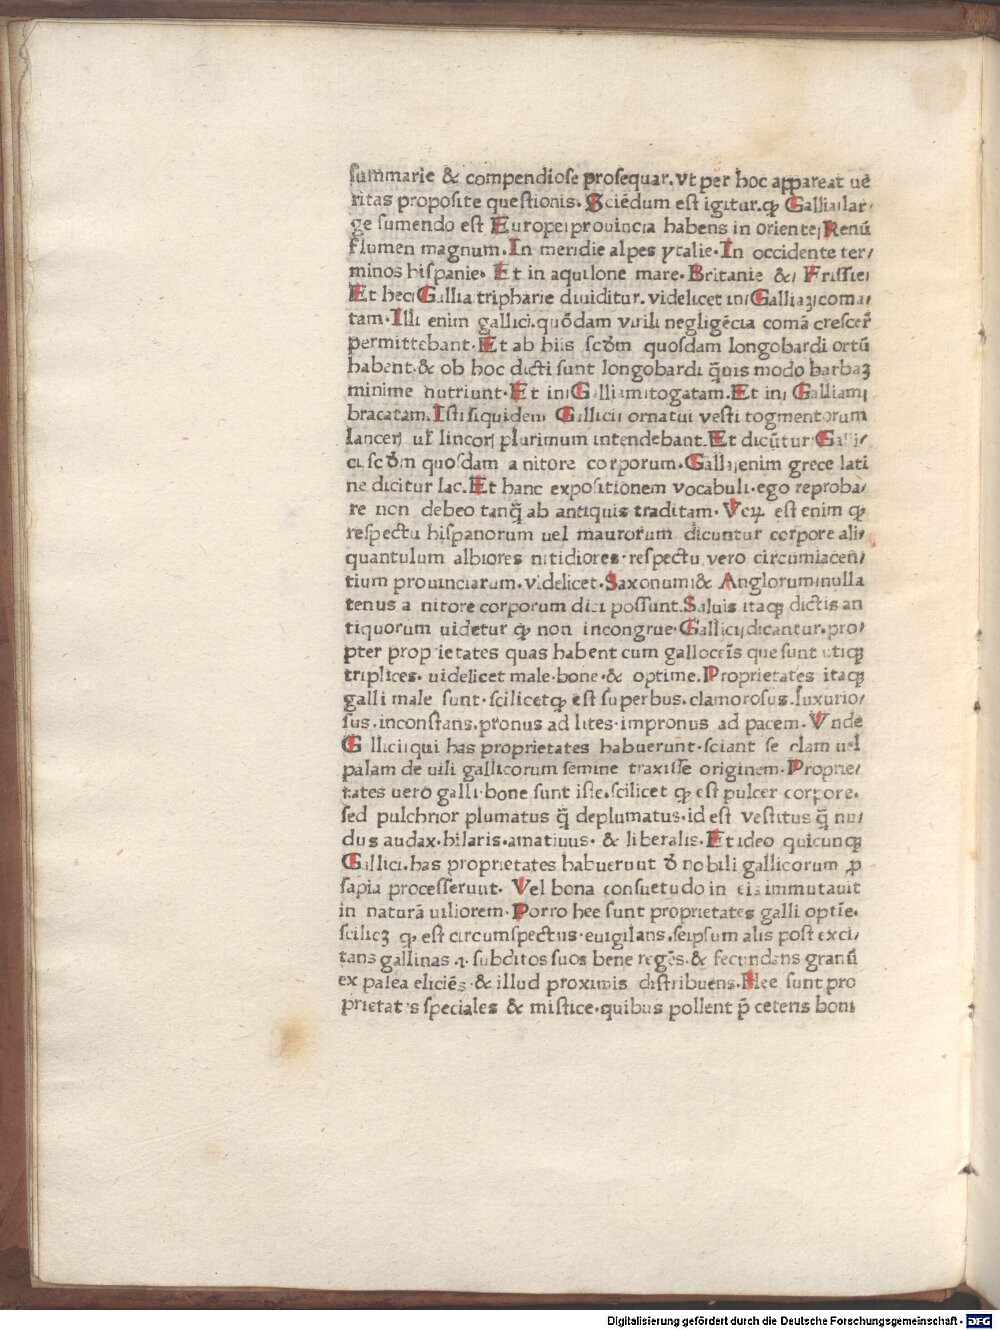 summarie & compendiose prosequar. vt per hoc appareat ue
ritas proposite questionis. Sciēdum est igitur. ꝙ Gallia lar⸗
ge sumendo est Europe prouincia habens in oriente Renū
flumen magnum. In meridie alpes ytalie. In occidente ter/
minos hispanie. Et in aquilone mare. Britanie & Frissie
Et hec Gallia tripharie diuiditur. videlicet in Galliaꝫ coma/
tam. Illi enim gallici. quōdam virili negligēcia comā crescer̄
permittebant. Et ab hiis scd̄m quosdam longobardi ortū
habent. & ob hoc dicti sunt longobardi q̄uis modo barbaꝫ
minime nutriunt. Et in Galliam togatam. Et in Galliam
bracatam. Isti siquidem Gallici ornatui vesti togmentorum
lanceꝝ ul̄ lincoꝝ plurimum intendebant. Et dicūtur Galli/
ci. scd̄m quosdam a nitore corporum. Galla enim grece lati
ne dicitur lac. Et hanc expositionem vocabuli. ego reproba/
re non debeo tanq̄ ab antiquis traditam. Veꝝ est enim ꝙ
respectu hispanorum uel maurorum dicuntur corpore ali/
quantulum albiores nitidiores. respectu vero circumiacen/
tium prouinciarum. videlicet. Saxonum & Anglorum nulla
tenus a nitore corporum dici possunt. Saluis itaqꝫ dictis an
tiquorum uidetur ꝙ non incongrue. Gallici dicantur. pro/
pter proprietates quas habent cum gallocēis que sunt utiqꝫ
triplices. uidelicet male. bone. & optime. Proprietates itaqꝫ
galli male sunt. scilicet ꝙ est superbus. clamorosus. luxurio/
sus. inconstans. pronus ad lites. impronus ad pacem. Vnde
G llici qui has proprietates habuerunt. sciant se clam uel
palam de uili gallicorum semine traxisse originem. Proprie/
tates uero galli bone sunt iste. scilicet ꝙ est pulcer corpore.
sed pulchrior plumatus q̄ deplumatus. id est vestitus q̄ nu/
dus audax. hilaris. amatiuus. & liberalis. Et ideo quicunqꝫ
Gallici. has proprietates habuerunt d̄ nobili gallicorum ꝓ
sapia processerunt. Vel bona consuetudo in eis immutauit
in naturā uiliorem. Porro hee sunt proprietates galli optīe.
scilicꝫ ꝙ est circumspectus. euigilans. seipsum alis post exci/
tans gallinas .i. subditos suos bene regēs. & fecundans granū
ex palea eliciēs. & illud proximis distribuens. Hee sunt pro
prietates speciales & mistice. quibus pollent p̄ ceteris boni
Digitalisierung gefördert durch die Deutsche Forschungsgemeinschaft - DFG